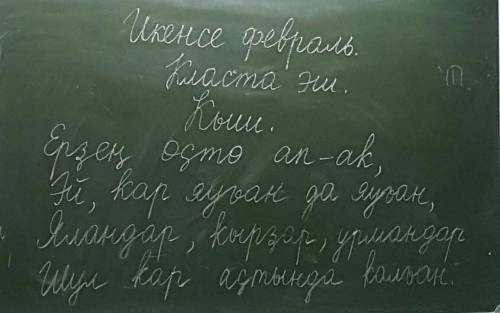 Икенсе февраль.
Класта эш.
Ҡыш.
Ерҙең өҫтө ап-аҡ,
Эй, ҡар яуған да яуған,
Яландар, ҡырҙар, урмандар
Шул ҡар аҫтында ҡалған.